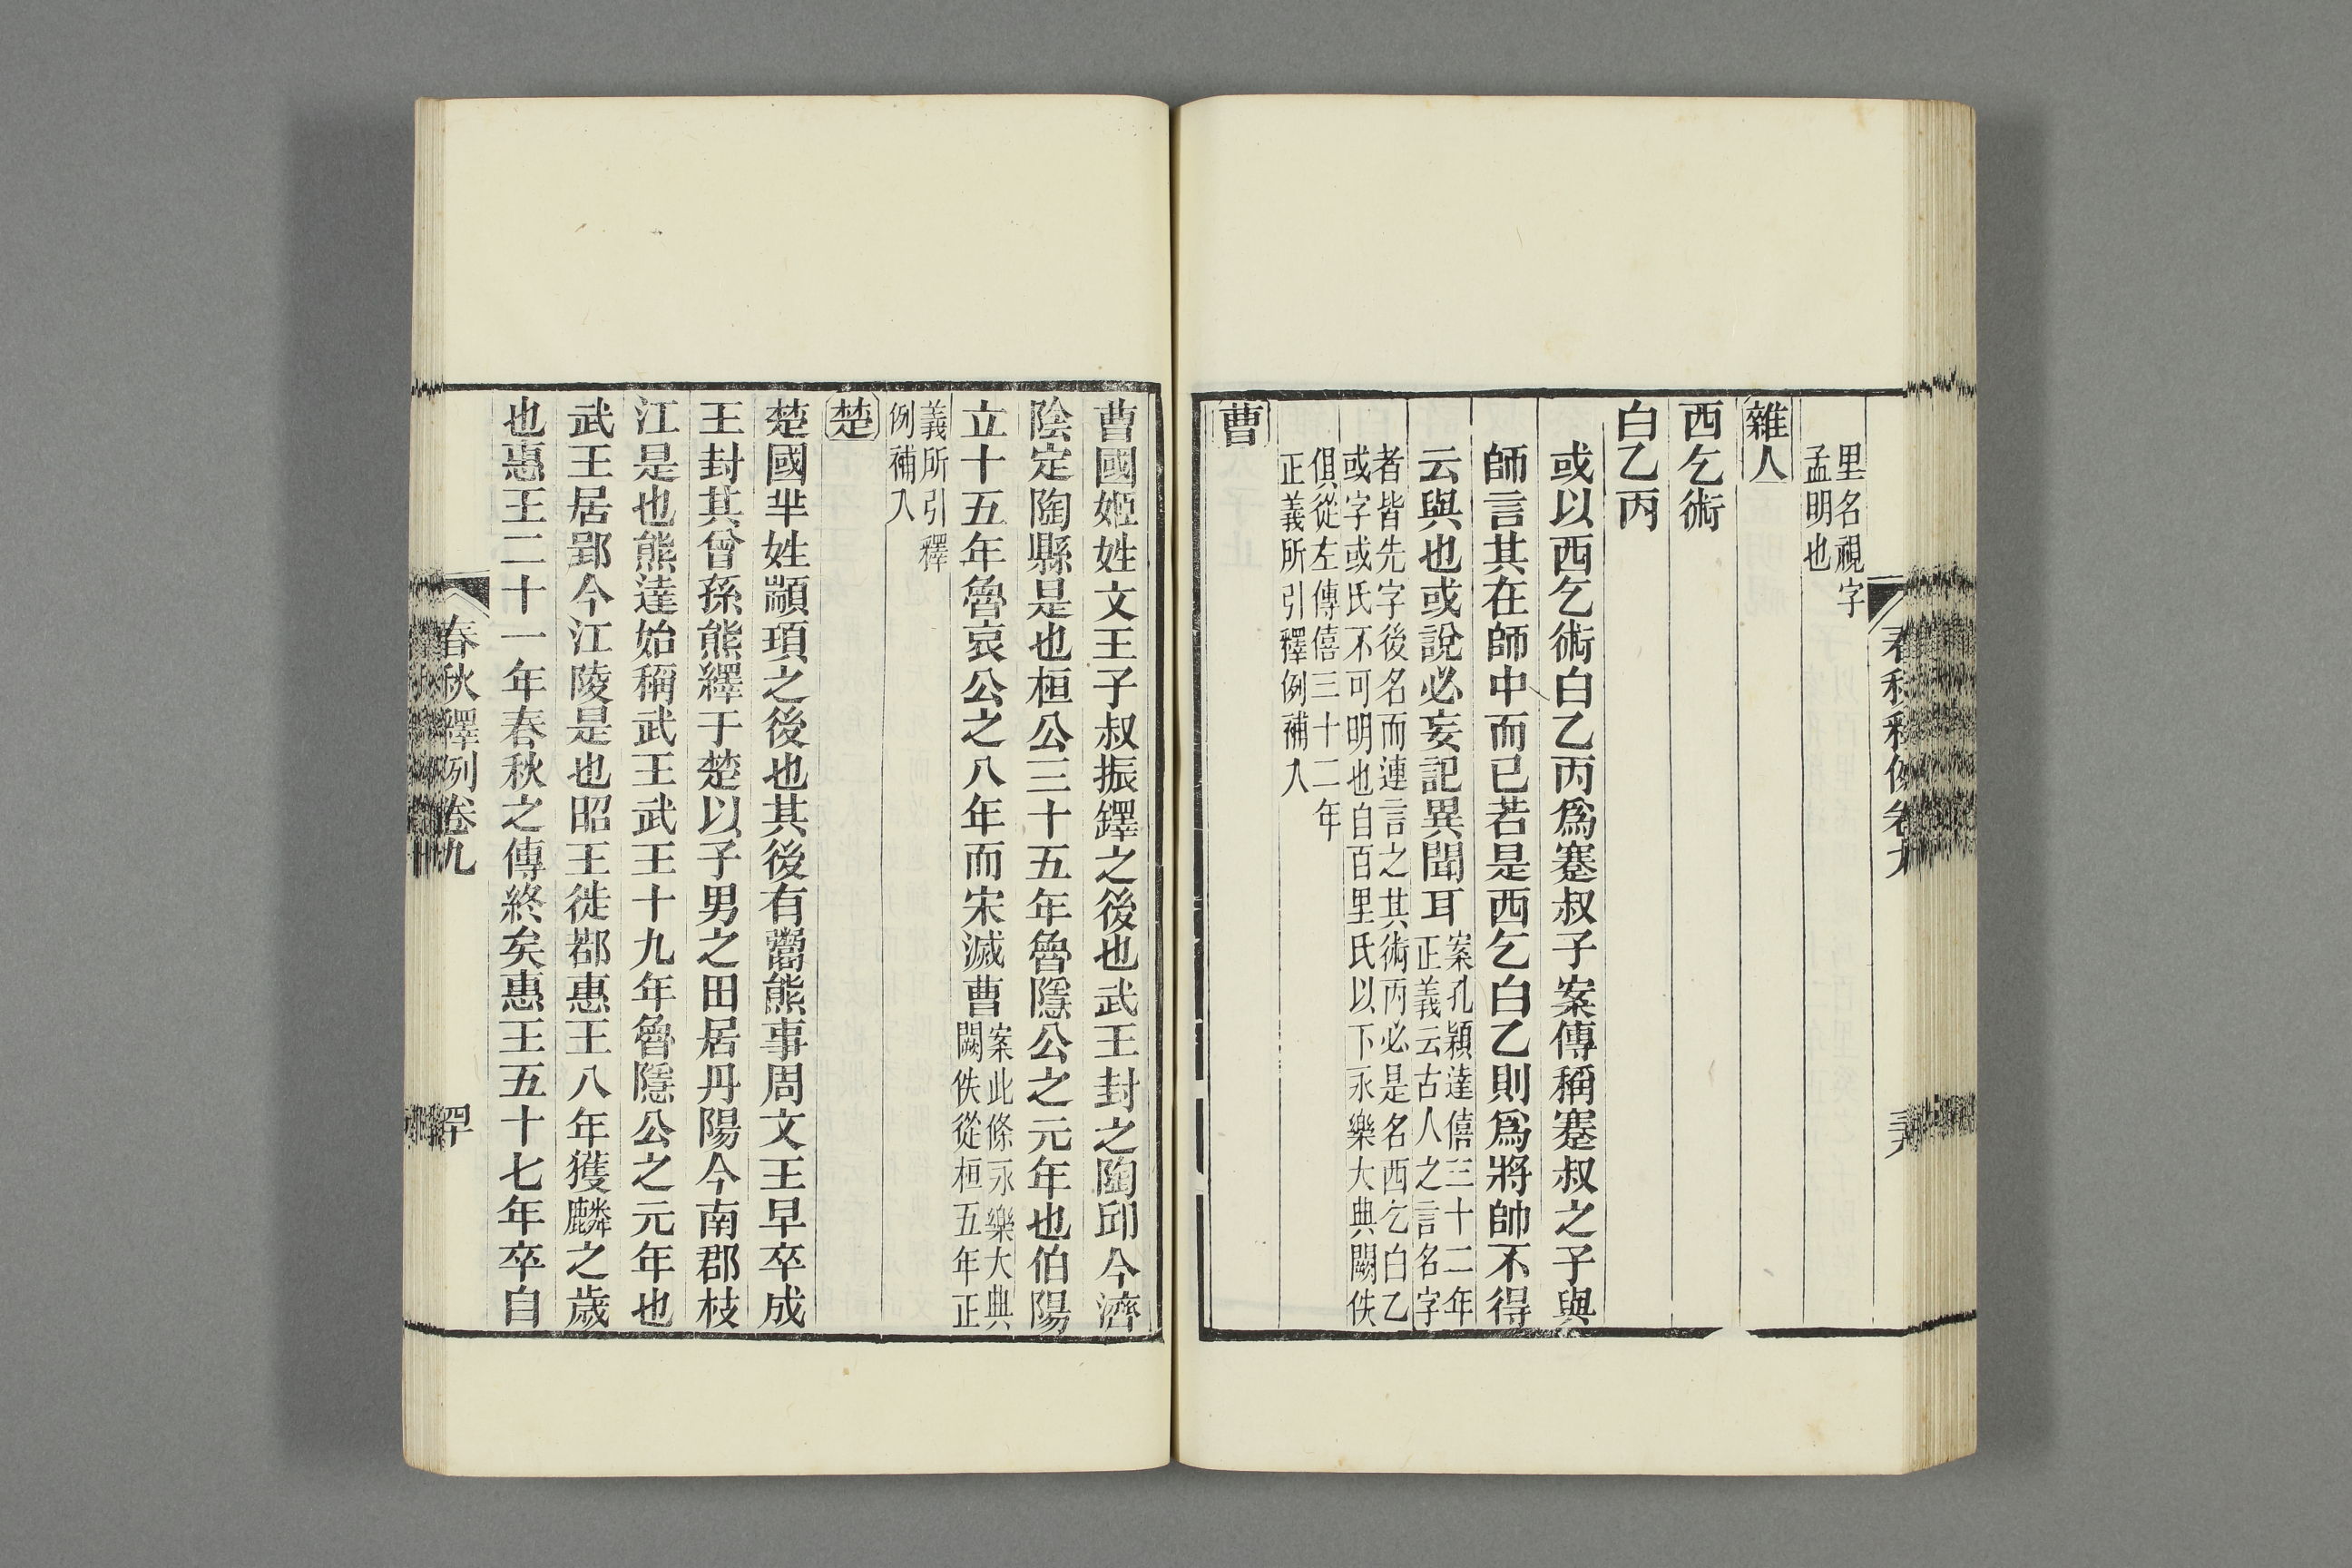 里名視字
孟明也
雜人
西乞術
白乙丙
或以西乞術白乙丙爲蹇叔子案傳稱蹇叔之子與
師言其在師中而已若是西乞白乙則爲將帥不得
云與也或說必妄記異聞耳案孔穎達僖三十二年
正義云古人之言名字
者皆先字後名而連言之其術丙必是名西乞白乙
或字或氏不可明也自百里氏以下永樂大典闕佚
俱從左傳僖三十二年
正義所引釋例補入
曹
曹國姬姓文王子叔振鐸之後也武王封之陶邱今濟
陰定陶縣是也桓公三十五年魯隱公之元年也伯陽
立十五年魯哀公之八年而宋滅曹案此條永樂大典
闕佚從桓五年正
義所引釋
例補入
楚
楚國羋姓顓頊之後也其後有鬻熊事周文王早卒成
王封其曾孫熊繹于楚以子男之田居丹陽今南郡枝
江是也熊達始稱武王武王十九年魯隱公之元年也
武王居郢今江陵是也昭王徙鄀惠王八年獲麟之歲
也惠王二十一年春秋之傳終矣惠王五十七年卒自
春秋釋例卷九